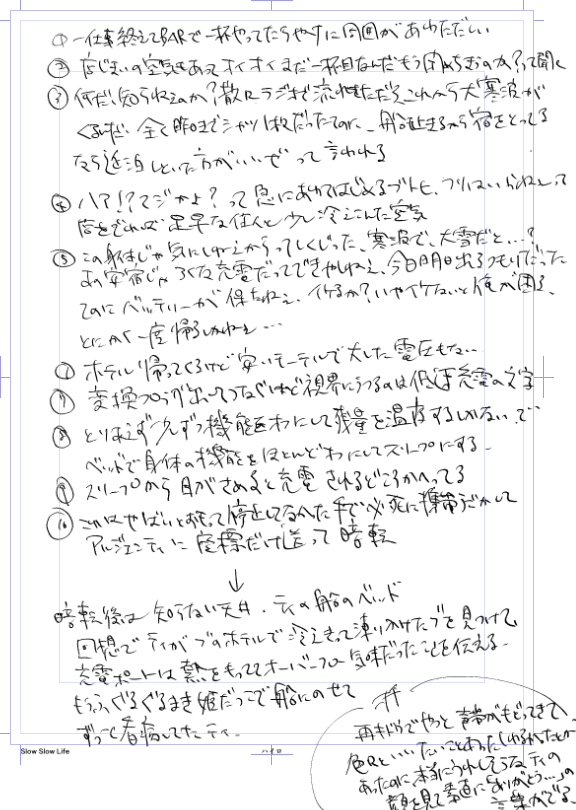 ① 一仕事終えてBARで一杯やってたらやけに周囲があわただしい
② 店じまいの空気もあってオイオイまだ一杯目なんだもう閉めちまうのか?って聞く
③ 何だ、知らねえのか?散々ラジオで流れてただろ、これから大寒波が
くるんだ、全く昨日までシャツ1枚だったてのに、船止まるから宿をとってる
なら延泊しといた方がいいぜって言われる
④ ハア!?マジかよ?って急にあわてはじめるブトヒル、
店をでれば足早な住人と少し冷えこんだ空気
⑤ この身体じゃ気にしねえからってしくじった、寒波で、大雪だと…?
あの安宿じゃろくな充電だってできやしねえ、今日明日出るつもりだった
てのにバッテリーが保たねえ、イケるか?いやイケないと俺が困る、
とにかく一度帰るしかねえ…
ホテル帰ってくるけど安いモーテルで大した電圧もない
⑦ 変換プラグ使ってつなぐけど視界にうつるのは低速充電の文字
⑧ とりあえず少しずつ機能をオフにして残量を温存するしかない、で
ベッドで身体の機能をほとんどオフにしてスリープにする
⑨ スリープから目がさめると充電されるどころかへってる
⑩ これはやばいとおもって停止してなかった手で必死に携帯うごかして
アルジェンティに座標だけ送って暗転
↓
暗転後は知らない天井・ティの船のベッド
回想でティがブのホテルで冷えきって凍りかけたブを見つけて
充電ポートは熱をもっててオーバーフロー気味だったことを伝える
もうふぐるぐるまき姫だっこで船にのせて
ずっと看病してたティ
再起動でやっと声帯がもどってきて
色々といいたいことあったしけど
あったのに、本当にうれしそうなティの
顔を見て素直に「ありがとう…」の
言葉がでる
Slow Slow Life
ハイロ